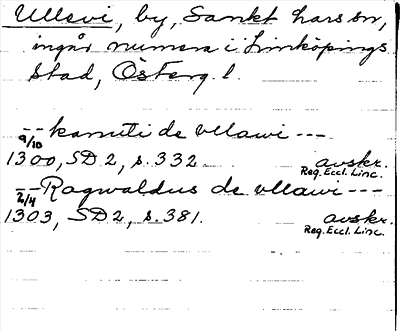 Ullevi, by, Sankt Lars sn,
ingår numera i Linköpings
stad, Österg. l.
-- kanuti de vllawi ---
9/10 1300, SD 2, s. 332 avskr. Reg. Eccl. Linc.
-- Ragwaldus de vllawi ---
2/4 1303, SD 2, s. 381. avskr. Reg. Eccl. Linc.